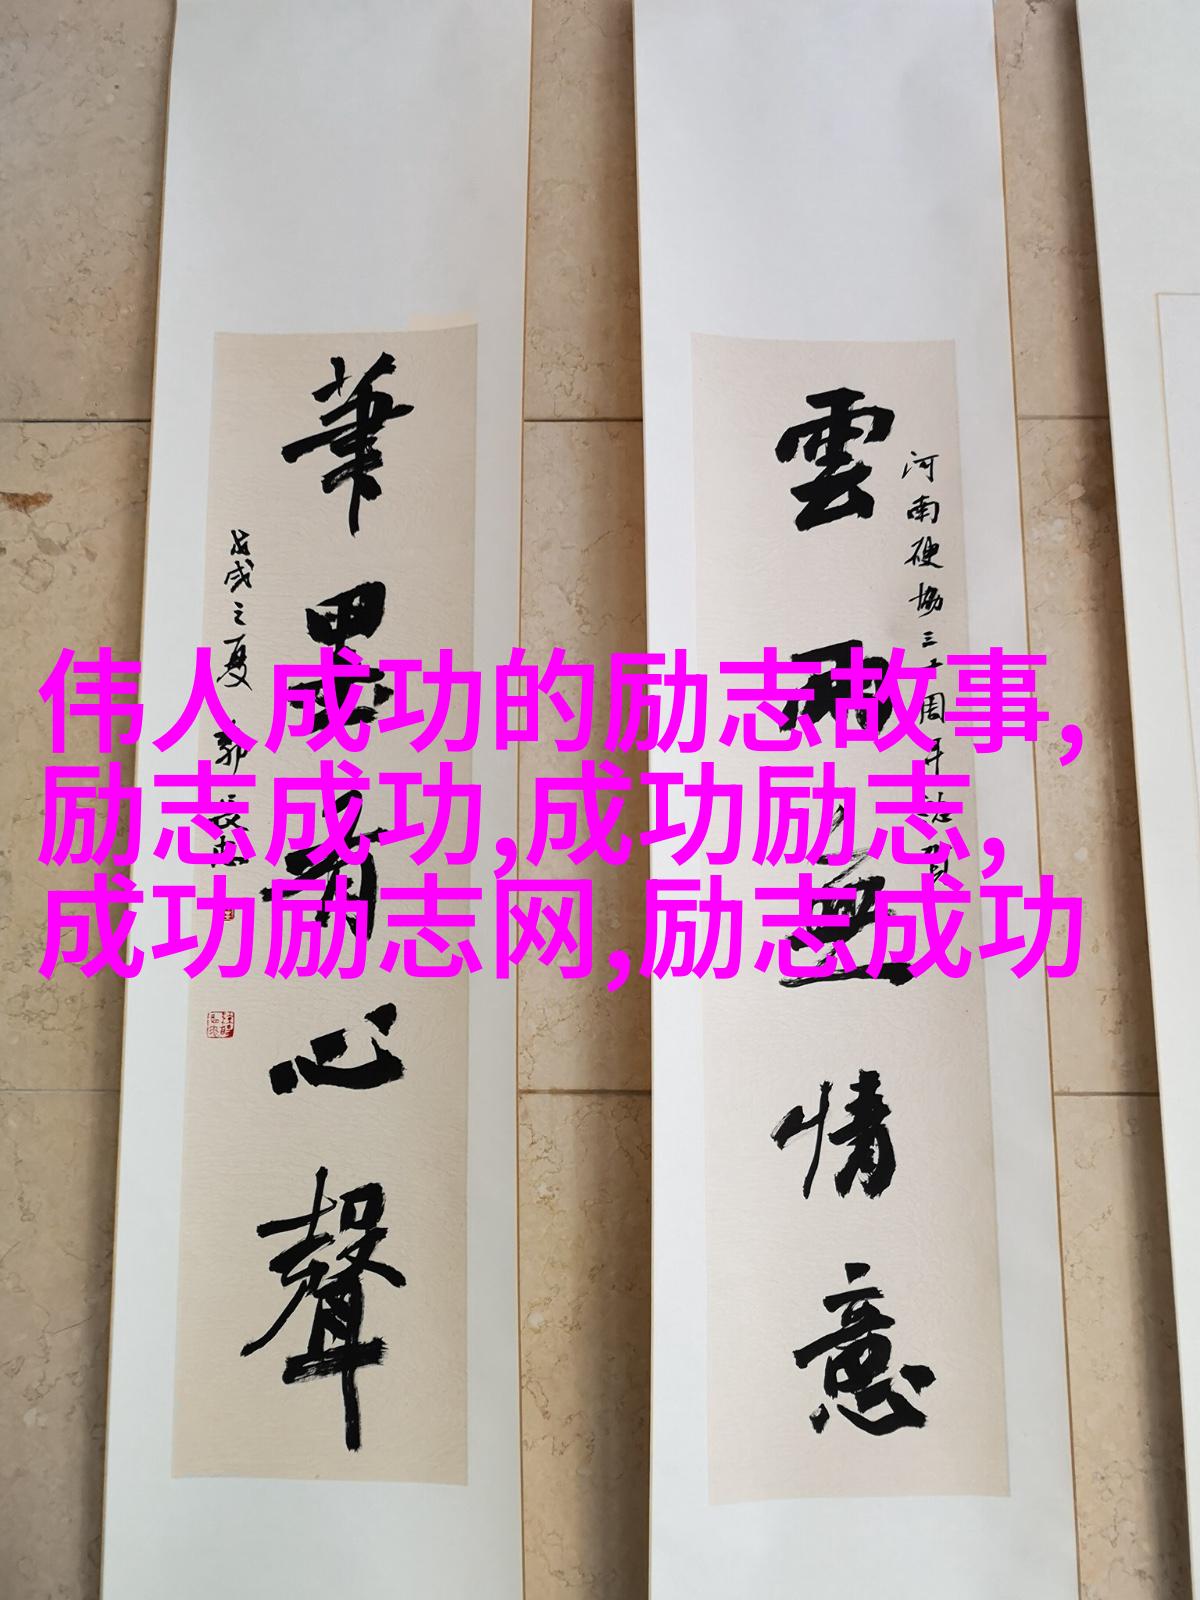 伟人成功的励志故事,
励志成功,成功励志,
成功励志网,励志成功
河南硬協三十周年
雲雨無情意
筆墨有心聲
戊戌之夏 郭